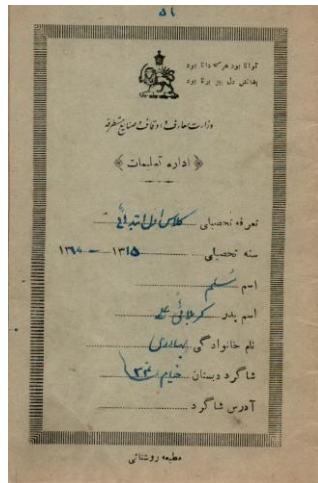 ۵۱
توانا بود هر که دانا بود
بدانش دل پیر برنا بود
وزارت معارف و اوقاف و صنایع مستظرفه
اداره تعلیمات
تعرفه تحصیلی کلاس اول ابتدائی
سنه تحصیلی ۱۳۱۵ –
اسم
اسم پدر کربلائی علی
نام خانوادگی بهادری
شاگرد دبستان خیام
آدرس شاگرد
مطبعه روشنائی